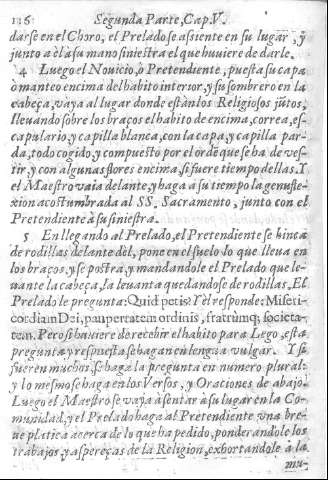 136 Segunda Parte, Cap. V.
darse en el Choro, el Prelado se assiente en su lugar, y
junto a èl à su mano siniestra el que huviere de darle.
4 Luego el Novicio, ò Pretendiente, puesta su capa
ò manteo encima del habito interior, y su sombrero en la
cabeça, vaya al lugar donde estàn los Religiosos jũtos,
llevando sobre los braços el habito de encima, correa, es-
capulario, y capilla blanca, con la capa, y capilla par-
da, todo cogido, y compuesto por el orde que se ha de ves-
tir, y con algunas flores encima, si fuere tiempo dellas. Y
el Maestro vaia delante, y haga à su tiempo la genufle-
xion acostumbrada al SS. Sacramento, junto con el
Pretendiente à su siniestra.
5 En llegando al Prelado, el Pretendiente se hinca
de rodillas delante del, pone en el suelo lo que lleva en
los braços, y se postra, y mandandole el Prelado que le-
vante la cabeça, la levanta quedandose de rodillas. El
Prelado le pregunta: Quid petis? Y èl responde: Miseri-
cordiam Dei, paupertatem ordinis, fratrumq; societa-
tem. Pero si huviere de recebir el habito para Lego, esta
pregunta, y respuesta se hagan en lengua vulgar. Y si
fueren muchos, se haga la pregunta en numero plural:
y lo mesmo se haga en los Versos, y Oraciones de abajo.
Luego el Maestro se vaya à sentar à su lugar en la Co-
munidad, y el Prelado haga al Pretendiente una bre-
ve platica acerca de lo que ha pedido, ponderandole los
trabajos, y asperezas de la Religion, exhortandole à la
mu-